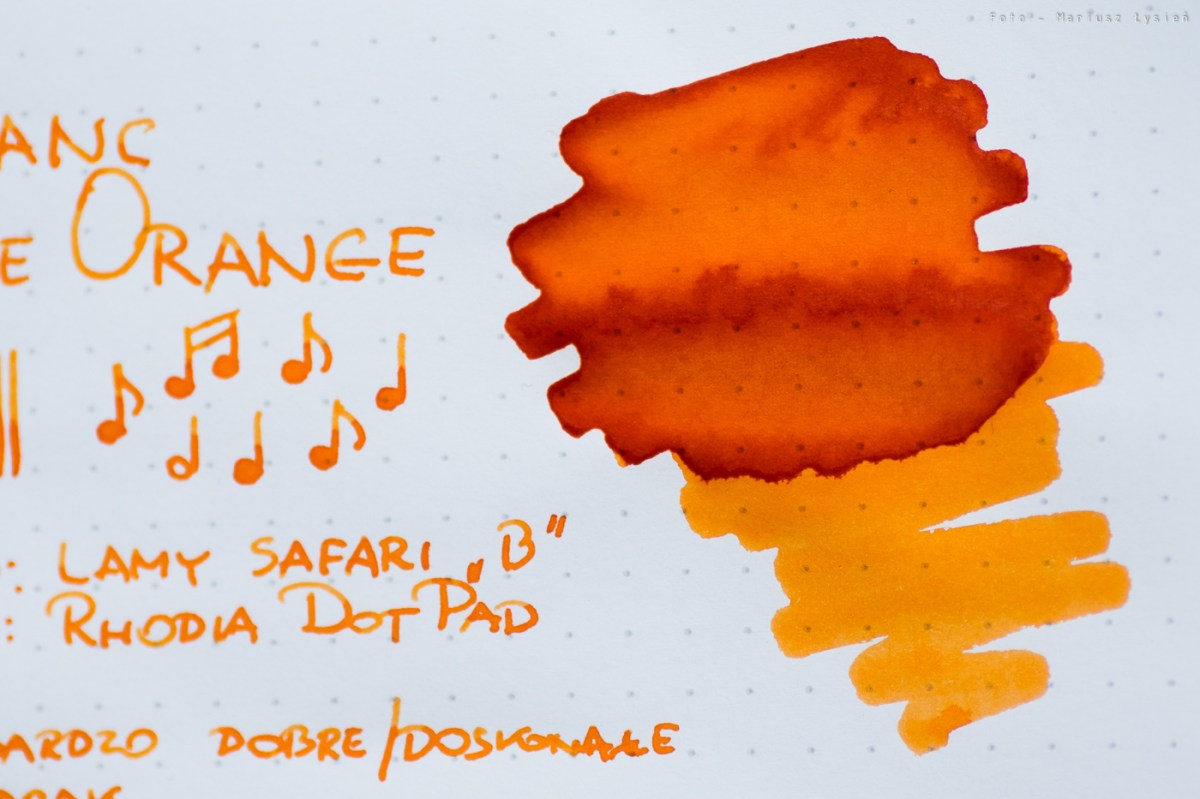 Foto - Mariusz Łysień
ANC
E ORANGE
: LAMY SAFARI „B"
: RHODIA DOT PAD
ARDZO DOBRE/DOSKONAŁE